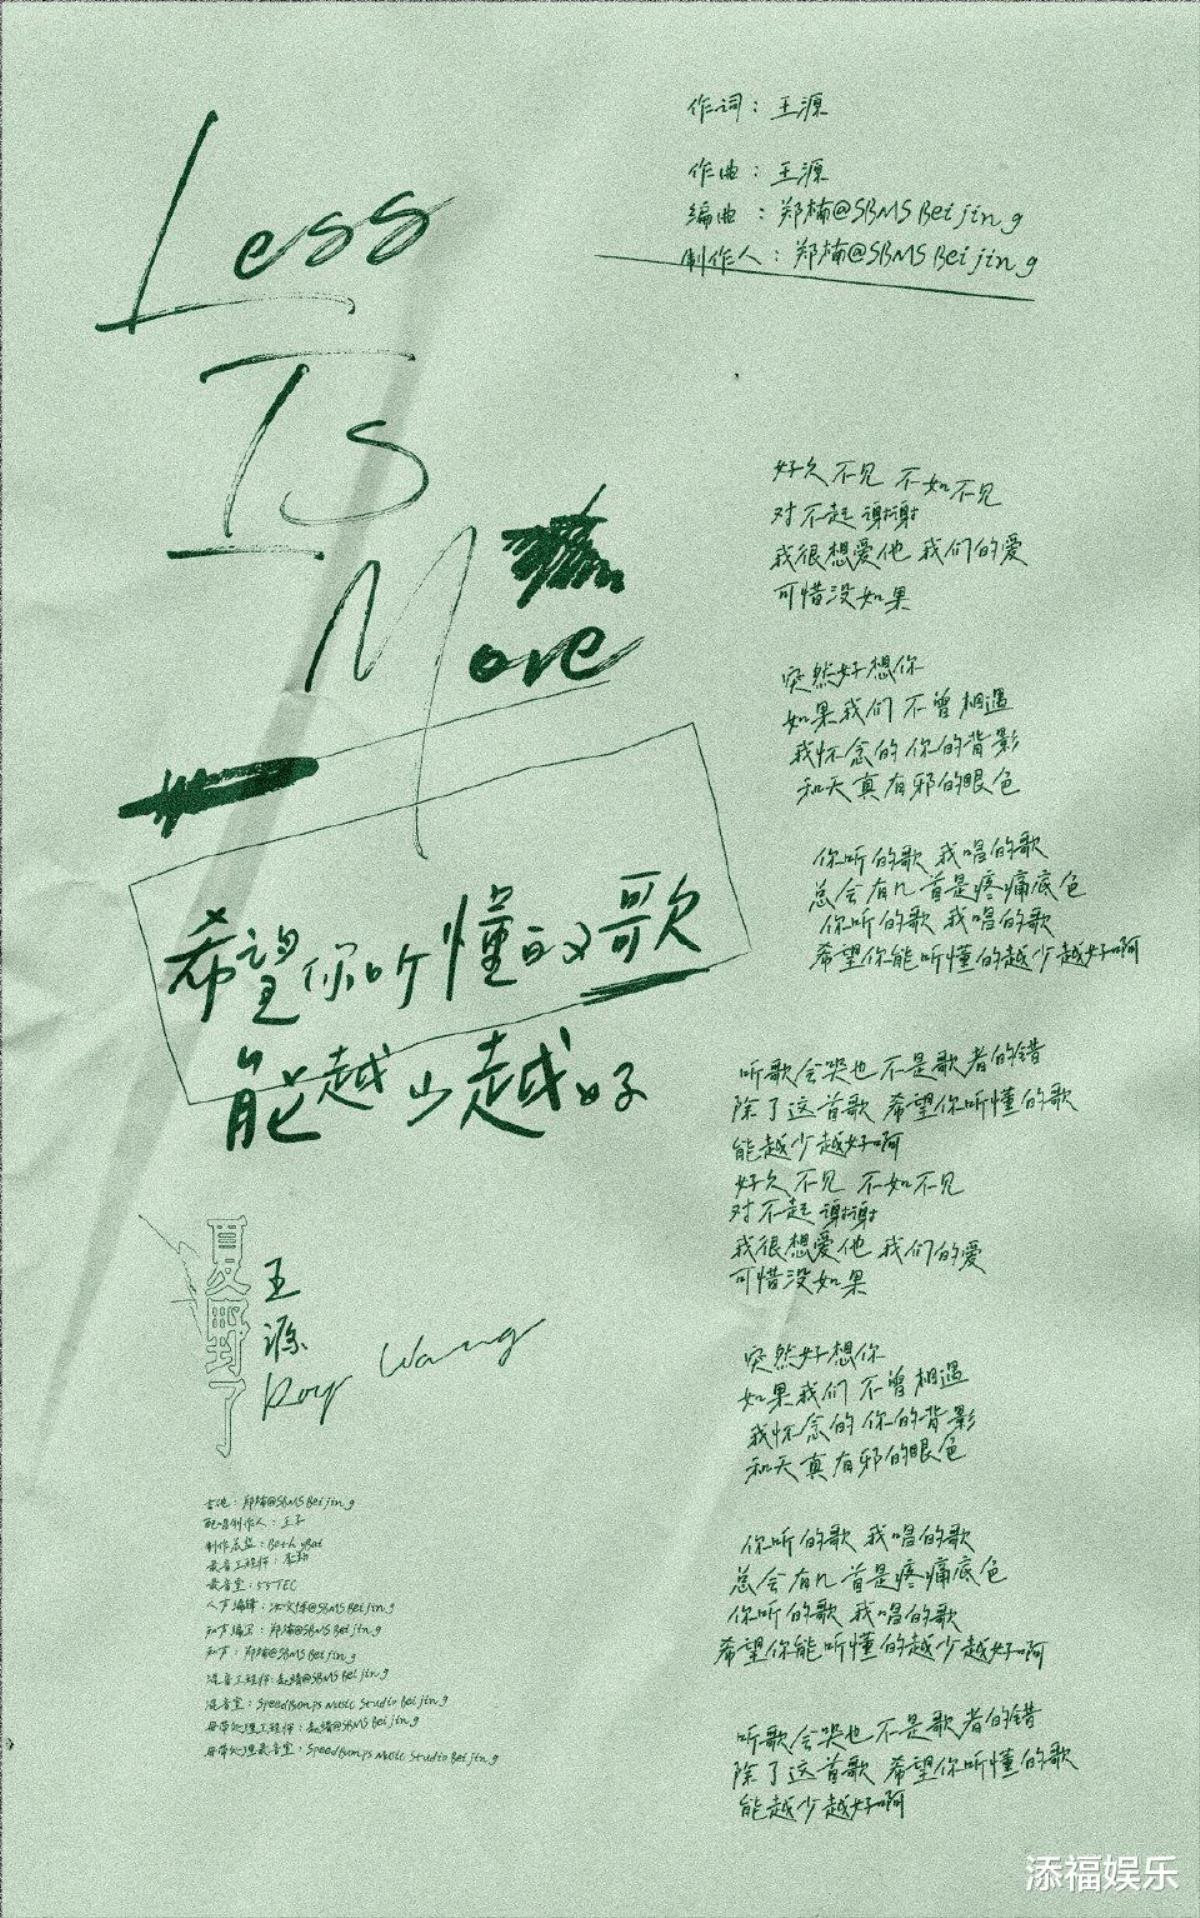 Less
Is
More
希望你听懂的歌
能越少越好
夏野了
王源
Roy Wang
吉他：郑楠@SBMS Beijing
配唱制作人：王子
制作总监：Beth yBai
录音工程师：李勤
录音室：55TEC
人声编辑：@SBMS Beijing
和声编写：郑楠@SBMS Beijing
和声：郑楠@SBMS Beijing
混音工程师：赵靖@SBMS Beijing
混音室：SpeedBumps Music Studio Beijing
母带处理工程师：赵靖@SBMS Beijing
母带处理录音室：SpeedBumps Music Studio Beijing
作词：王源
作曲：王源
编曲：郑楠@SBMS Beijing
制作人：郑楠@SBMS Beijing
好久不见 不如不见
对不起 谢谢
我很想爱他 我们的爱
可惜没如果
突然好想你
如果我们不曾相遇
我怀念的 你的背影
和天真有邪的眼色
你听的歌 我唱的歌
总会有几首是疼痛底色
你听的歌 我唱的歌
希望你能听懂的越少越好啊
听歌会哭也不是歌者的错
除了这首歌 希望你听懂的歌
能越少越好啊
好久不见 不如不见
对不起 谢谢
我很想爱他 我们的爱
可惜没如果
突然好想你
如果我们不曾相遇
我怀念的 你的背影
和天真有邪的眼色
你听的歌 我唱的歌
总会有几首是疼痛底色
你听的歌 我唱的歌
希望你能听懂的越少越好啊
听歌会哭也不是歌者的错
除了这首歌 希望你听懂的歌
能越少越好啊
添福娱乐